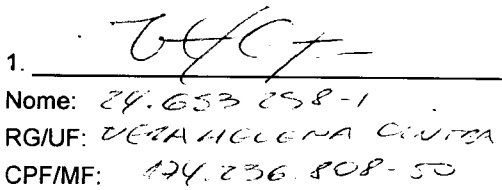 1.
Nome: 24.653 258-1
RG/UF: VERA HELENA CINTRA
CPF/MF: 174.236.808-50